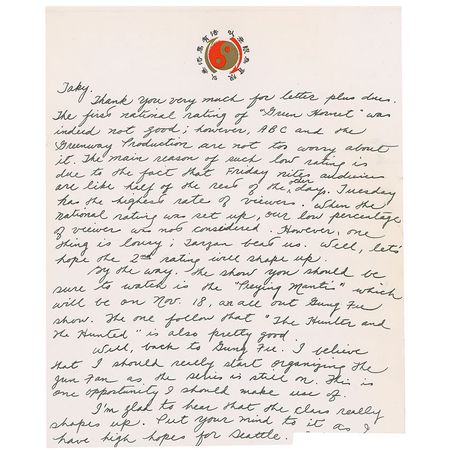 Taky,
Thank you very much for letter plus dues.
The first national rating of "Green Hornet" was
indeed not good; however, ABC and the
Greenway Production are not too worry about
it. The main reason of such low rating is
due to the fact that Friday nites audience
are like half of the rest of the other days. Tuesday
has the highest rate of viewers. When the
national rating was set up, our low percentage
of viewer was not considered. However, one
thing is lousy; Tarzan beat us. Well, let's
hope the 2nd rating will shape up.
By the way. The show you should be
sure to watch is the "Preying Mantis" which
will be on Nov. 18, an all out Gung Fu
show. The one follow that "The Hunter and
the Hunted" is also pretty good
Well, back to Gung Fu. I believe
that I should really start organizing the
Jun Fan as the series is still on. This is
one opportunity I should make use of.
I'm glad to hear that the class really
shapes up. Put your mind to it as I
have high hopes for Seattle.